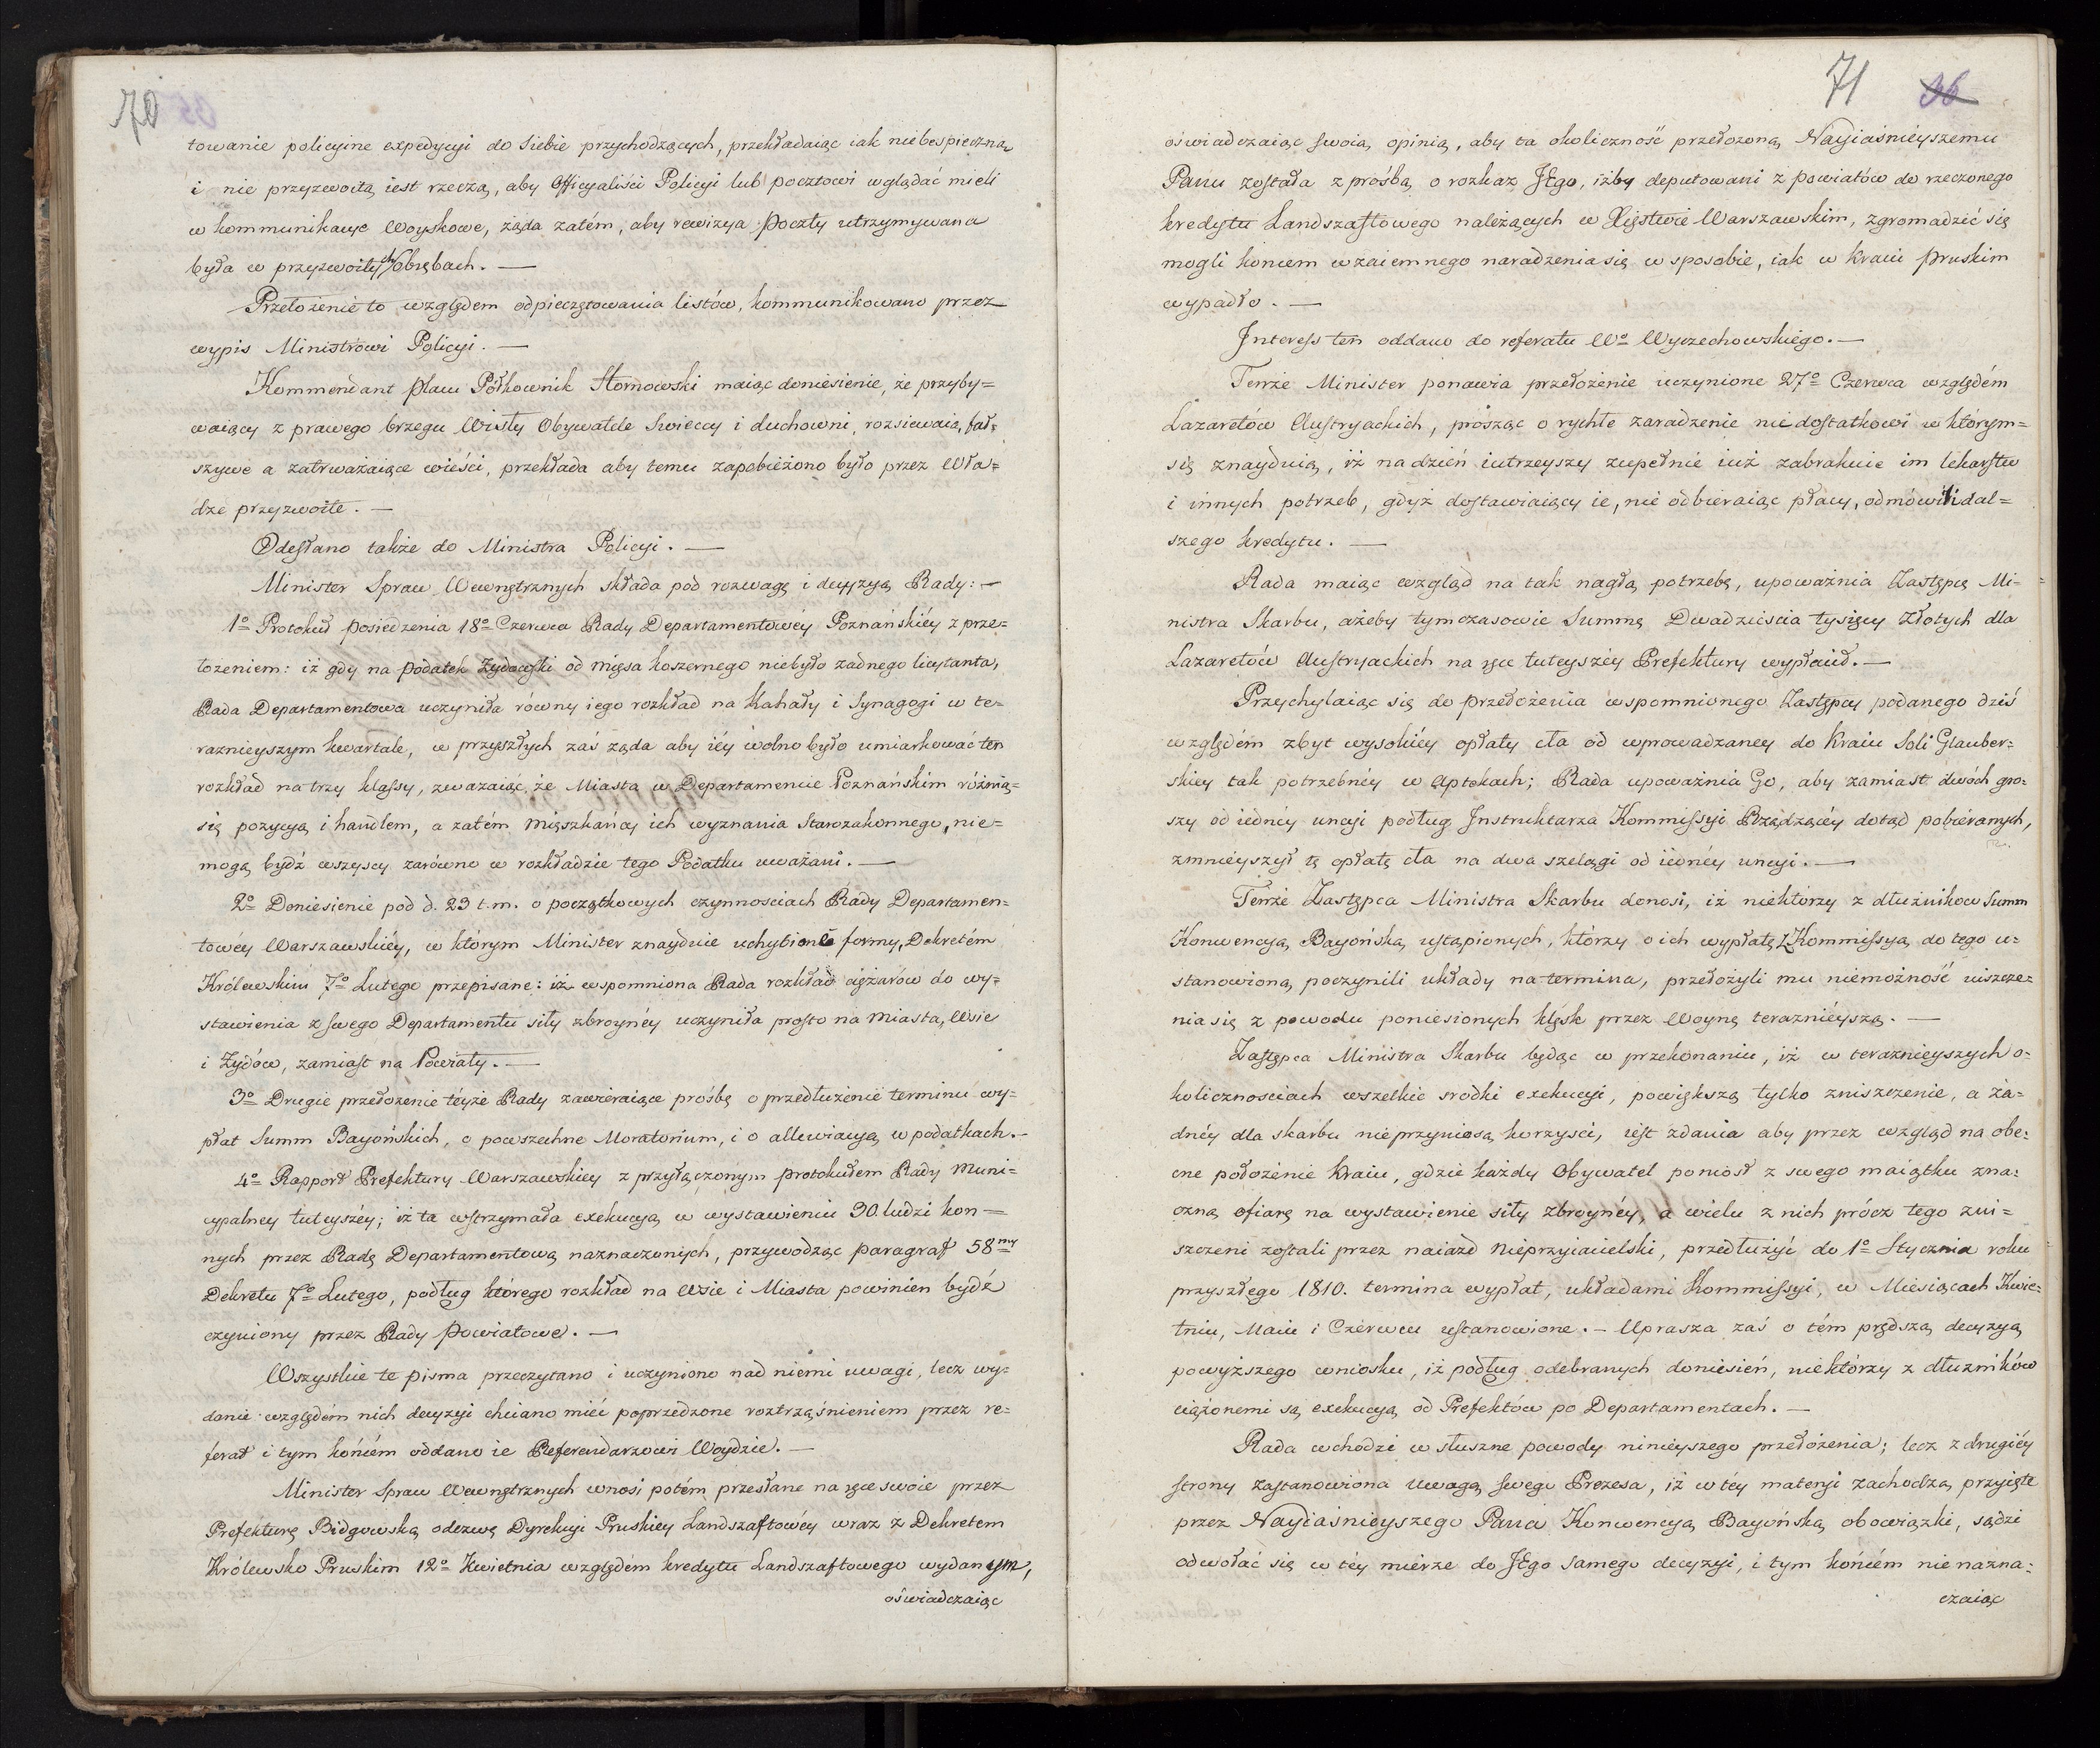 70
towanie policyine expedycyi do siebie przychodzących, przekładaiąc iak niebespieczną
i nie przyzwoitą iest rzeczą, aby Officyaliści Policyi lub pocztowi wglądać mieli
w kommunikacye Woyskowe, żąda zatém, aby rewizya Poczty utrzymywana
była w przyzwoitych obrębach. —
Przełożenie to względem odpieczętowania listów, kommunikowano przez
wypis Ministrowi Policyi. —
Kommendant placu Półkownik Hornowski maiąc doniesienie, że przyby=
waiący z prawego brzegu Wisły Obywatele Swieccy i duchowni, rozsiewaią fał=
szywe a zatrważaiące wieści, przekłada aby temu zapobieżono było przez Wła=
dze przyzwoite. —
Odesłano także do Ministra Policyi. —
Minister Spraw Wewnętrznych składa pod rozwagę i decyzyą Rady: —
1º Protokuł posiedzenia 18º Czerwca Rady Departamentowéy Poznańskiéy z prze=
łożeniem: iż gdy na podatek Żydowski od mięsa koszernego niebyło żadnego licytanta,
Rada Departamentowa uczyniła równy iego rozkład na Kahały i Synagogi w te=
raznieyszym kwartale, w przyszłych zaś żąda aby iéy wolno było umiarkować ten
rozkład na trzy klassy, zważaiąc, że Miasta w Departamencie Poznańskim różnią=
się pozycyą i handlem, a zatém Mięszkańcy ich wyznania Starozakonnego, nie=
mogą bydź wszyscy zarówno w rozkładzie tego Podatku uważani. —
2º Doniesienie pod d. 23 t.m. o początkowych czynnosciach Rady Departamen=
towéy Warszawskiéy, w którym Minister znayduie uchybione formy, Dekretém
Królewskim 7º Lutego przepisane: iż wspomniona Rada rozkład ciężarów do wy=
stawienia z swego Departamentu siły zbroynéy uczyniła prosto na Miasta, Wsie
i Żydów, zamiast na Powiaty. —
3º Drugie przełożenie téyże Rady zawieraiące prośbę o przedłużenie terminu wy=
płat Summ Bayońskich, o powszechne Moratorium, i o allewiacyą w podatkach. —
4º Rapport Prefektury Warszawskiey z przyłączonym protokułem Rady Muni=
cypalney tuteyszéy; iż ta wstrzymała exekucyą w wystawieniu 30. ludzi kon=
nych przez Radę Departamentową naznaczonych, przywodząc paragraf 58my
Dekretu 7º Lutego, podług którego rozkład na Wsie i Miasta powinien bydź
czyniony przez Rady Powiatowe. —
Wszystkie te pisma przeczytano i uczyniono nad niemi uwagi, lecz wy=
danie względém nich decyzyi chciano mieć poprzedzone roztrząśnieniem przez re=
ferat i tym końcém oddano ie Referendarzowi Woydzie. —
Minister Spraw Wewnętrznych wnosi potém przesłane na ręce swoie przez
Prefekturę Bidgowską odezwę Dyrekcyi Pruskiey Landszaftowéy wraz z Dekretem
Królewsko Pruskim 12º Kwietnia względém kredytu Landszaftowego wydanym,
oświadczaiąc
71 36
oświadczaiąc swoią opinią, aby ta okoliczność przełożoną Nayiaśnieyszemu
Panu została z prośbą o rozkaz JEgo, iżby deputowani z powiatów do rzeczonego
kredytu Landszaftowego należących w Xięstwie Warszawskim, zgromadzić się
mogli koncem wzaiemnego naradzenia się w sposobie, iak w Kraiu pruskim
wypadło. —
Interess ten oddano do referatu Wº Wyczechowskiego. —
Tenże Minister ponawia przełożenie uczynione 27º Czerwca względém
Lazaretów Austryackich, prosząc o rychłe zaradzenie niedostatkowi w którym=
się znayduią, iż na dzień iutrzeyszy zupełnie iuż zabraknie im lekarstw
i innych potrzeb, gdyż dostawiaiący ie, nie odbieraiąc płacy, odmówili dal=
szego kredytu. —
Rada maiąc wzgląd na tak nagłą potrzebę, upoważnia Zastępcę Mi=
nistra Skarbu, ażeby tymczasowie Summę Dwadzieścia tysięcy Złotych dla
Lazaretów Austryackich na ręce tuteyszéy Prefektury wypłacił. —
Przychylaiąc się do przełożenia wspomnionego Zastępcy podanego dziś
względém zbyt wysokiéy opłaty cła od wprowadzaney do Kraiu Soli Glauber=
skiey tak potrzebnéy w Aptekach; Rada upoważnia Go, aby zamiast dwóch gro=
szy od iednéy uncyi podług Instruktarza Kommissyi Rządzącéy dotąd pobieranych,
zmnieyszył tę opłatę cła na dwa szelągi od iednéy uncyi. —
Tenże Zastępca Ministra Skarbu donosi, iż niektórzy z dłużnikow Summ
Konwencyą Bayońską ustąpionych, którzy o ich wypłatę z Kommissyą do tego u=
stanowioną poczynili układy na termina, przełożyli mu niemożność uiszcze=
nia się z powodu poniesionych klęsk przez Woynę teraznieyszą. —
Zastępca Ministra Skarbu będąc w przekonaniu, iż w teraznieyszych o=
kolicznosciach wszelkie srodki exekucyi, powiększą tylko zniszczenie, a ża=
dnéy dla skarbu nieprzyniosą korzyści, iest zdania aby przez wzgląd na obe=
cne położenie Kraiu, gdzie każdy Obywatel poniosł z swego maiątku zna=
czną ofiarę na wystawienie siły zbroynéy, a wielu z nich prócz tego zni=
szczeni zostali przez naiazd Nieprzyiacielski, przedłużyć do 1º Stycznia roku
przyszłego 1810. termina wypłat, układami Kommissyi, w Miesiącach Kwie=
tniu, Maiu i Czerwcu ustanowione. — Uprasza zaś o tém prędszą decyzyą
powyższego wniosku, iż podług odebranych doniesień, niektórzy z dłużników
ciążonemi są exekucyą od Prefektów po Departamentach. —
Rada wchodzi w słuszne powody ninieyszego przełożenia; lecz z drugiéy
strony zastanowiona uwagą swego Prezesa, iż w téy materyi zachodzą przyięte
przez Nayiaśnieyszego Pana Konwencyą Bayońską obowiązki, sądzi
odwołać się w téy mierze do JEgo samego decyzyi, i tym końcém nie nazna=
czaiąc